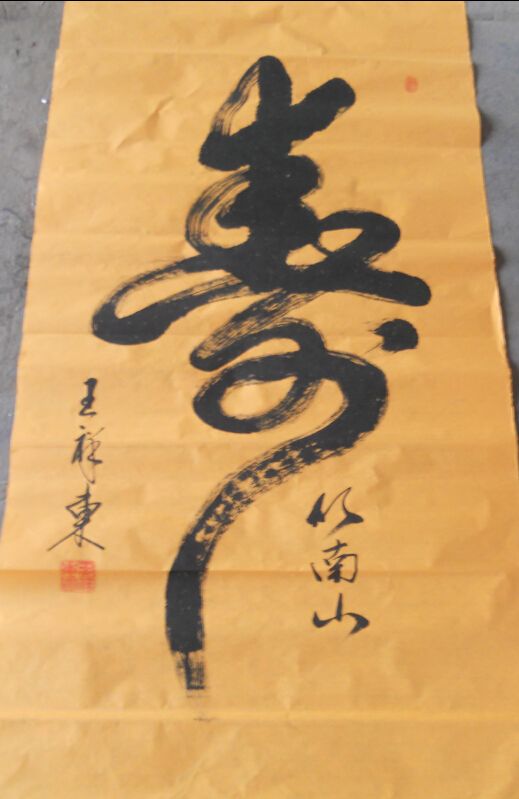 寿
比南山
王祥東